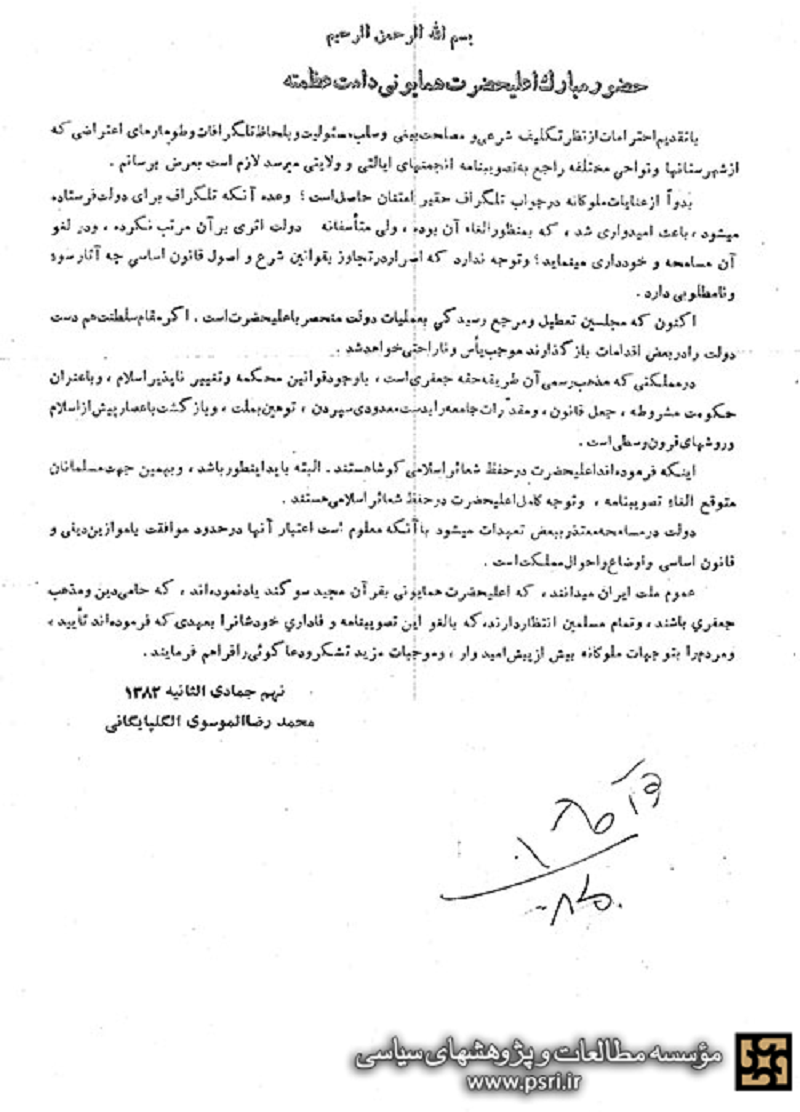 بسم الله الرحمن الرحیم
حضور مبارک اعلیحضرت همایونی دامت عظمته
با تقدیم احترامات از نظر تکلیف شرعی و مصلحت بینی و سلب مسئولیت و بلحاظ تلگرافات و طومارهای اعتراضی که
از شهرستانها و نواحی مختلفه راجع به تصویبنامه انجمنهای ایالتی و ولایتی میرسد لازم است بعرض برسانم .
بدواً از عنایات ملوکانه در جواب تلگراف حقیر امتنان حاصل است ؛ وعده آنکه تلگراف برای دولت فرستاده
میشود ، باعث امیدواری شد ، که بمنظور الغاء آن بوده ، ولی متأسفانه دولت اثری بر آن مرتب نکرده ، و در لغو
آن مسامحه و خودداری مینماید ؛ و توجه ندارد که اصرار در تجاوز بقوانین شرع و اصول قانون اساسی چه آثار سوء
و نامطلوبی دارد .
اکنون که مجلسین تعطیل و مرجع رسیدگی بعملیات دولت منحصر باعلیحضرت است . اگر مقام سلطنت هم دست
دولت را در بعض اقدامات باز گذارند موجب یأس و ناراحتی خواهد شد .
در مملکتی که مذهب رسمی آن طریقه حقه جعفری است ، با وجود قوانین محکمه و تغییر ناپذیر اسلام ، و با عنوان
حکومت مشروطه ، جعل قانون ، و مقدّرات جامعه را بدست معدودی سپردن ، توهین بملت ، و بازگشت باعصار پیش از اسلام
و روشهای قرون وسطی است .
اینکه فرموده اند اعلیحضرت در حفظ شعائر اسلامی کوشا هستند . البته باید اینطور باشد ، و بهمین جهت مسلمانان
متوقع الغاء تصویبنامه ، و توجه کامل اعلیحضرت در حفظ شعائر اسلامی هستند .
دولت در مسامحه معتذر ببعض تعهدات میشود با آنکه معلوم است اعتبار آنها در حدود موافقت با موازین دینی و
قانون اساسی و اوضاع و احوال مملکت است .
عموم ملت ایران میدانند ، که اعلیحضرت همایونی بقرآن مجید سوگند یاد نموده اند ، که حامی دین و مذهب
جعفری باشند ، و تمام مسلمین انتظار دارند، که بالغو این تصویبنامه وفاداری خودشانرا بعهدی که فرموده اند تأیید ،
و مردم را بتوجهات ملوکانه بیش از پیش امیدوار ، و موجبات مزید تشکر و دعا گوئی را فراهم فرمایند .
نهم جمادی الثانیه ۱۳۸۲
محمد رضا الموسوی الگلپایگانی
مؤسسه مطالعات و پژوهشهای سیاسی
www.psri.ir